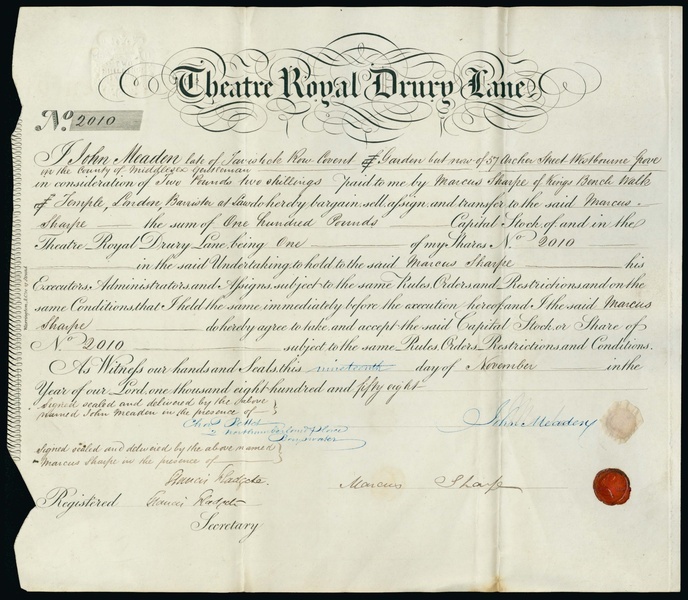 Theatre Royal Drury Lane.
No. 2010
I John Meaden late of Tavistock Row Covent of Garden but now of 57 Archer Street Westbourne Grove
in the County of Middlesex Gentleman
in consideration of Two Pounds two shillings paid to me by Marcus Sharpe of Kings Bench Walk
of Temple, London Barrister at Law do hereby bargain, sell, assign, and transfer to the said Marcus
Sharpe the sum of One hundred Pounds Capital Stock, of and in the
Theatre Royal Drury Lane, being One of my Shares No. 2010
in the said Undertaking, to hold to the said Marcus Sharpe his
Executors, Administrators, and Assigns, subject to the same Rules, Orders, and Restrictions, and on the
same Conditions, that I held the same immediately before the execution hereof, and I the said Marcus
Sharpe do hereby agree to take and accept the said Capital Stock, or Share of
No. 2010 subject to the same Rules, Orders, Restrictions, and Conditions.
As Witness our hands and Seals, this nineteenth day of November in the
Year of our Lord, one thousand eight hundred and fifty eight
Signed sealed and delivered by the above
named John Meaden in the presence of
John Meaden
Signed sealed and delivered by the above named
Marcus Sharpe in the presence of
Francis
Marcus Sharpe
Registered Francis
Secretary